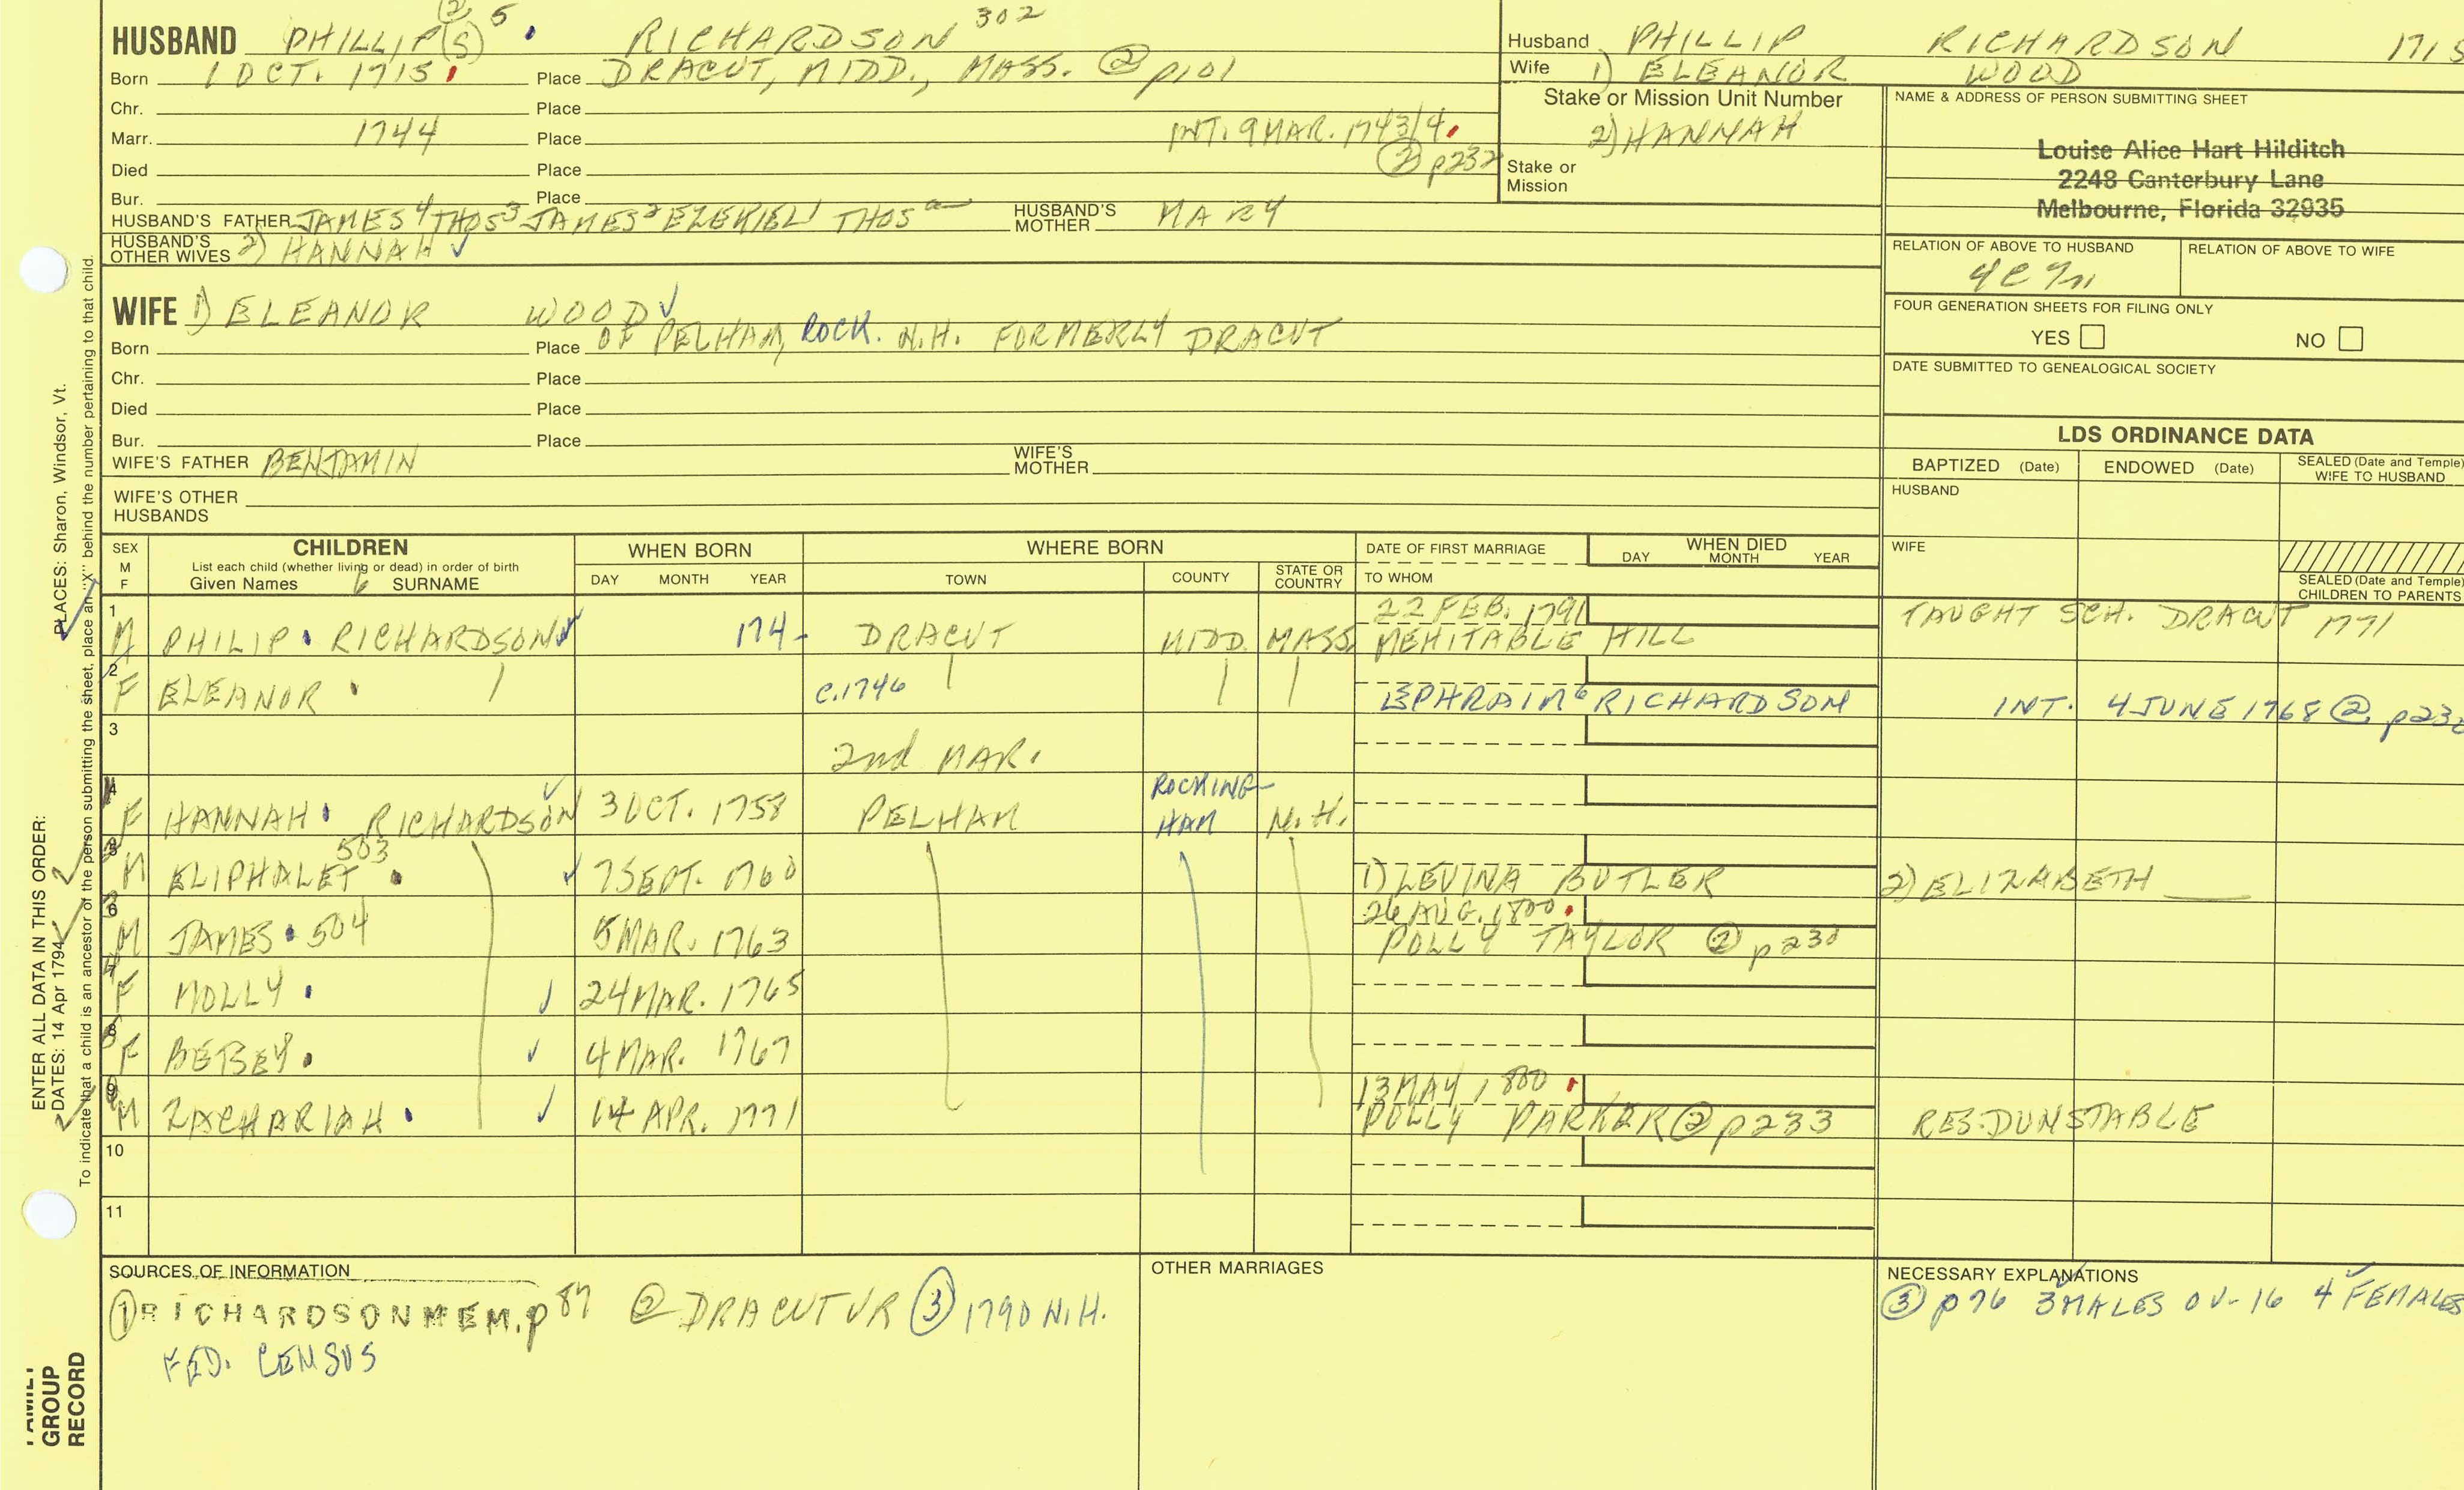 (2) 5
HUSBAND PHILLIP(S) RICHARDSON 302
Born 1 OCT. 1715 Place DRACUT, MIDD., MASS. ② p101
Chr. Place
Marr. 1744 Place INT. 9 MAR. 1743/4.
② p232
Died Place
Bur. Place
HUSBAND'S FATHER JAMES 4 THOS 3 JAMES 2 EZEKIEL 1 THOS a HUSBAND'S MOTHER MARY
HUSBAND'S OTHER WIVES 2) HANNAH ✓
Husband PHILLIP RICHARDSON 1715
Wife 1) ELEANOR WOOD
Stake or Mission Unit Number
2) HANNAH
Stake or Mission
NAME & ADDRESS OF PERSON SUBMITTING SHEET
Louise Alice Hart Hilditch
2248 Canterbury Lane
Melbourne, Florida 32935
RELATION OF ABOVE TO HUSBAND RELATION OF ABOVE TO WIFE
FOUR GENERATION SHEETS FOR FILING ONLY
YES NO
DATE SUBMITTED TO GENEALOGICAL SOCIETY
WIFE 1) ELEANOR WOOD ✓
Born Place OF PELHAM, ROCK. N.H. FORMERLY DRACUT
Chr. Place
Died Place
Bur. Place
WIFE'S FATHER BENJAMIN WIFE'S MOTHER
WIFE'S OTHER HUSBANDS
LDS ORDINANCE DATA
BAPTIZED (Date) ENDOWED (Date) SEALED (Date and Temple) WIFE TO HUSBAND
HUSBAND
WIFE
SEALED (Date and Temple) CHILDREN TO PARENTS
SEX M F CHILDREN WHEN BORN WHERE BORN DATE OF FIRST MARRIAGE WHEN DIED
List each child (whether living or dead) in order of birth
Given Names 6 SURNAME DAY MONTH YEAR TOWN COUNTY STATE OR COUNTRY TO WHOM DAY MONTH YEAR
1 22 FEB. 1791
M PHILIP RICHARDSON 174- DRACUT MIDD. MASS. MEHITABLE HILL TAUGHT SCH. DRACUT 1771
2
F ELEANOR C.1746 EPHRAIM 6 RICHARDSON INT. 4 JUNE 1768 ② p232
3
2nd MAR.
4 ROCKING-
F HANNAH RICHARDSON 3 OCT. 1758 PELHAM HAM N.H.
5 503
M ELIPHALET 7 SEPT. 1760 1) LEVINA BUTLER 2) ELIZABETH
6 26 AUG. 1800.
M JAMES 504 5 MAR. 1763 POLLY TAYLOR ② p230
7
F MOLLY 24 MAR. 1765
8
F BETSEY 4 MAR. 1767
9 13 MAY 1800
M ZACHARIAH 14 APR. 1771 POLLY PARKER ② p233 RES. DUNSTABLE
10
11
SOURCES OF INFORMATION
① RICHARDSON MEM. p87 ② DRACUT VR ③ 1790 N.H.
FED. CENSUS
OTHER MARRIAGES
NECESSARY EXPLANATIONS
③ p76 3 MALES OV-16 4 FEMALES
ENTER ALL DATA IN THIS ORDER:
DATES: 14 Apr 1794
PLACES: Sharon, Windsor, Vt.
To indicate that a child is an ancestor of the person submitting the sheet, place an "X" behind the number pertaining to that child.
FAMILY
GROUP
RECORD